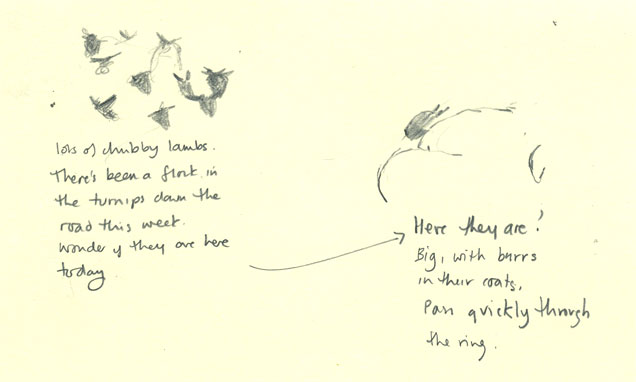 lots of chubby lambs.
There's been a flock in
the turnips down the
road this week.
Wonder if they are here
today
Here they are!
Big, with burrs
in their coats.
Pass quickly through
the ring.